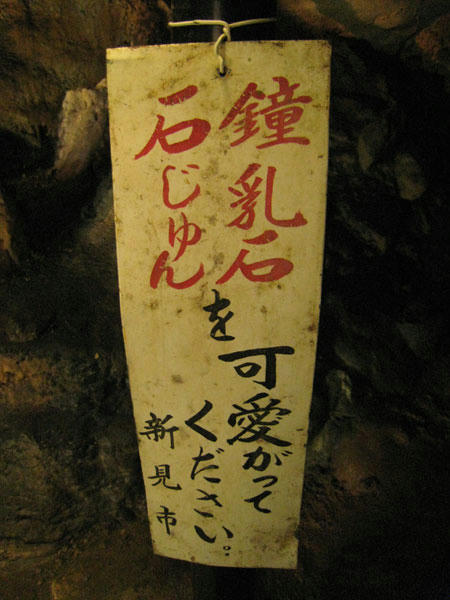 鐘乳石
石じゅん
を可愛がって
ください。
新見市